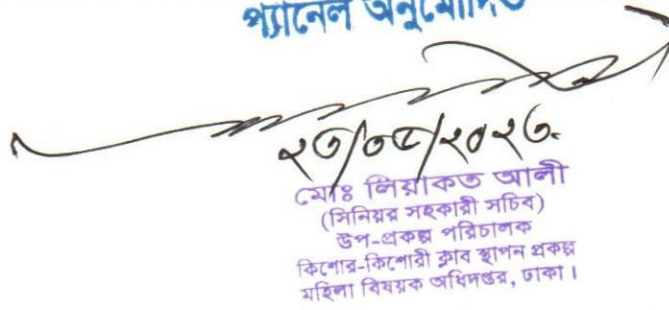 প্যানেল অনুমোদিত
২৩/০৫/২০২৩.
মোঃ লিয়াকত আলী
(সিনিয়র সহকারী সচিব)
উপ-প্রকল্প পরিচালক
কিশোর-কিশোরী ক্লাব স্থাপন প্রকল্প
মহিলা বিষয়ক অধিদপ্তর, ঢাকা।